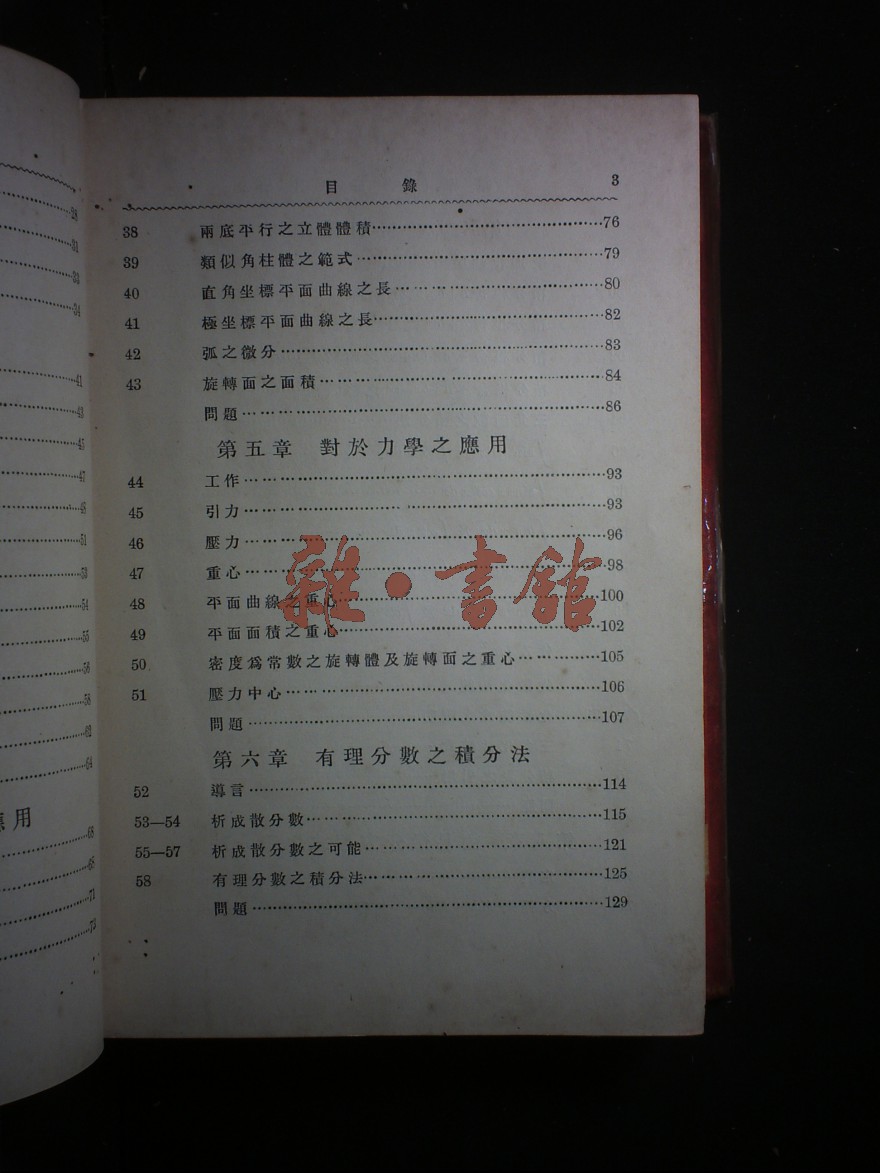 目 錄 3
38 兩底平行之立體體積 76
39 類似角柱體之範式 79
40 直角坐標平面曲線之長 80
41 極坐標平面曲線之長 82
42 弧之微分 83
43 旋轉面之面積 84
問題 86
第五章 對於力學之應用
44 工作 93
45 引力 93
46 壓力 96
47 重心 98
48 平面曲線之重心 100
49 平面面積之重心 102
50 密度爲常數之旋轉體及旋轉面之重心 105
51 壓力中心 106
問題 107
第六章 有理分數之積分法
52 導言 114
53—54 析成散分數 115
55—57 析成散分數之可能 121
58 有理分數之積分法 125
問題 129
雜·書館
28
31
33
34
41
43
45
47
48
51
53
54
55
56
58
62
64
應用
68
68
71
73